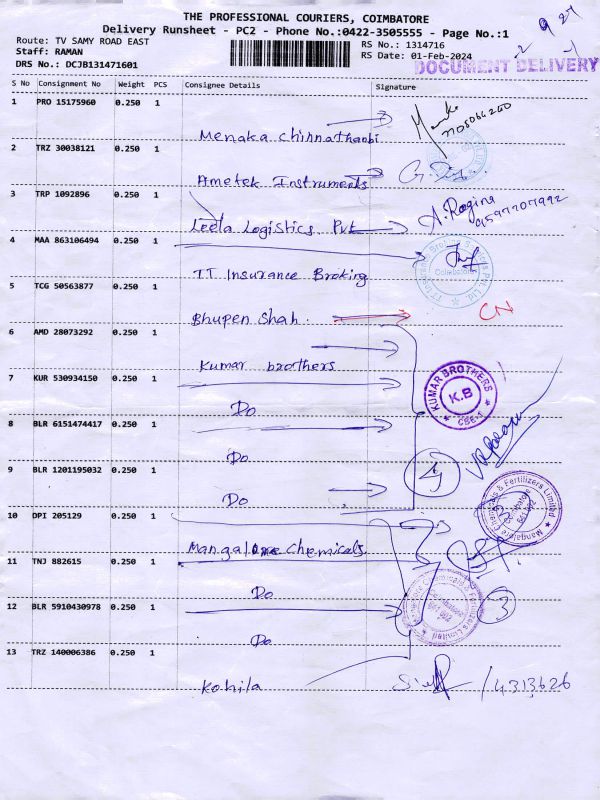 THE PROFESSIONAL COURIERS, COIMBATORE
Delivery Runsheet - PC2 - Phone No.:0422-3505555 - Page No.:1
Route: TV SAMY ROAD EAST
RS No.: 1314716
Staff: RAMAN
RS Date: 01-Feb-2024
DRS No.: DCJB131471601
DOCUMENT DELIVERY
S No Consignment No Weight PCS Consignee Details Signature
1 PRO 15175960 0.250 1
Menaka Chinnathanbi
2 TRZ 30038121 0.250 1
Ametek Instruments
3 TRP 1092896 0.250 1
Leela Logistics Pvt
A. Regina
9597707992
4 MAA 863106494 0.250 1
TT Insurance Broking
Coimbatore
5 TCG 50563877 0.250 1
Bhupen Shah.
CN
6 AMD 28073292 0.250 1
Kumar brothers
KUMAR BROTHERS
K.B
CBE-1
7 KUR 530934150 0.250 1
Do
8 BLR 6151474417 0.250 1
Do
9 BLR 1201195032 0.250 1
Do
4
Mangalore Chemicals & Fertilizers Limited
Coimbatore
641 002
10 DPI 205129 0.250 1
Mangalore Chemicals
11 TNJ 882615 0.250 1
Do
3
12 BLR 5910430978 0.250 1
Do
Mangalore Chemicals & Fertilizers Limited
Coimbatore
641 002
13 TRZ 140006386 0.250 1
Kohila
/4313626